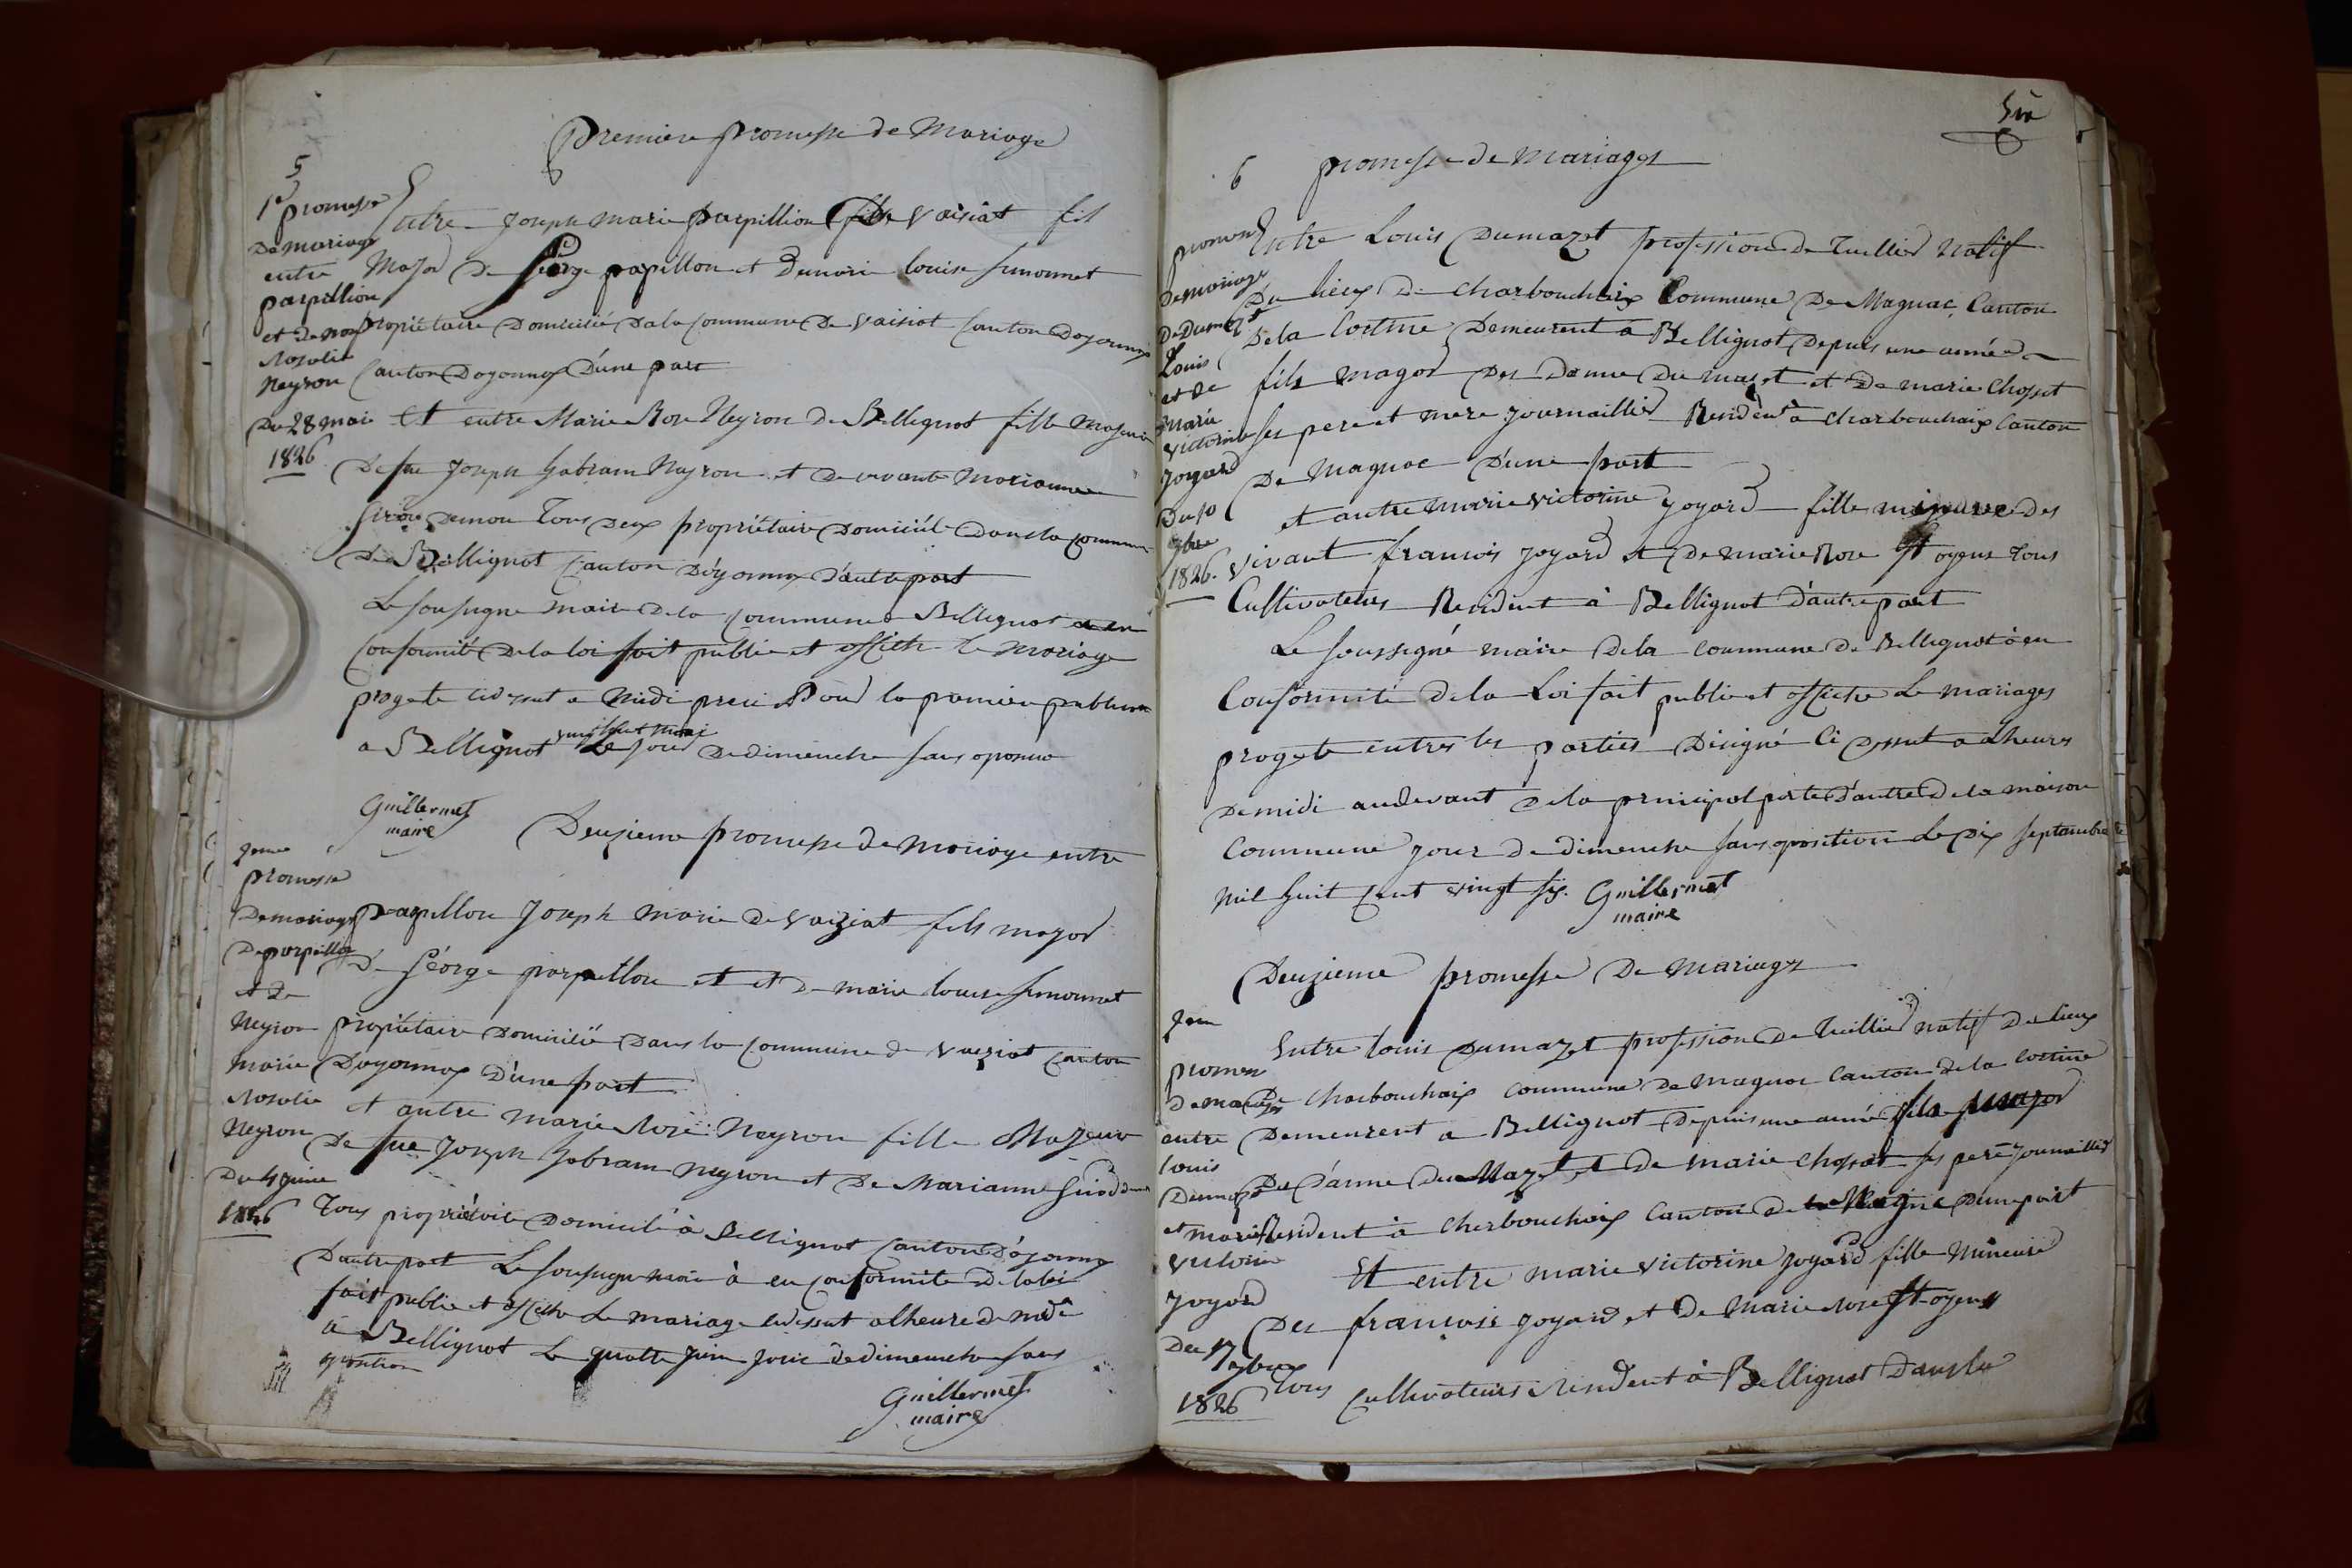 Premiere promesse de Mariage
5
1e promesse
De mariage
entre
parpillion
et de
Rosalie
Neyron
Du 28 mai
1826
Entre Joseph marie parpillion vaisiat fils
Major De George papillon et De marie louise simonnet
propriétaire Domicilié Dala Commune De Vaisiat Canton Doyonnax
Canton Doyonnax D'une part
Et entre Marie Rose Neyron de Bellignat fille Majeure
De feu Joseph Gabram Neyron et De vivante Marianne
Tous Deux propriétaire Domicilié Dans la Commune
De Bellignat Canton D'oyonnax D'autre part
Le sousigne maire De la Commune Bellignat a en
Conformité De la loi fait publie et affiche le Mariage
progete cidessut a Midi preci Pour la premiere publication
a Bellignat vingt huit mai Le jour de dimenche sans
Guillermet
maire
2eme
promesse
De mariage
De parpillion
et De
Neyron
Marie
Rosalie
Neyron
Du 4 juin
1826
Deuzieme promesse de Mariage entre
Parpillon Joseph Marie de Vaiziat fils major
De George parpillon et et De marie louise simonnet
propriétaire Domicilié Dans la Commune de Vaeziat Canton
Doyonnax D'une part
et autre Marie Rose Neyron fille Majeur
De feu Joseph Gabram Neyron et De Marianne
Tous propriétaire Domicilié à Bellignat Canton D'oyonnax
D'autre part Le sousigne maire à en conformite De la loi
fait publie et affiche Le mariage cidessut a lheure de midi
à Bellignat Le quatre Juin Jour de dimenche sans
oposition
Guillermet
maire
6
promesse de Mariages
promesse
De mariage
De Dumazet
Louis
et De
Marie
victorine
Joyard
Du 10
7bre
1826.
Entre Louis Dumazet profession de Tuillier Natif
Du lieux De Charbouchaix Commune De Magnac, Canton
De la Cortine Demeurent à Bellignat Depuis une année
fils magor Des Danne Du mazet et De marie Chosset
ses pere et mere Journaillier Resident à charbouchaix Canton
De Magnac D'une part
et autre marie victorine Joyard fille mineure des
vivant francois Joyard et De marie Rose St oyens Tous
Cultivateurs Resident à Bellignat D'autre part
Le soussigné maire Dela commune De Bellignat à en
Conformité de la Loi fait publie et affiche Le mariages
progete entres les parties Disigné Ci dessut a lheures
De midi audevant De la principal porte D'antre De la maison
Commune Jour De dimenche sans oposition Le Dix septambre
Mil huit Cent vingt six. Guillermet
maire
Deuzieme promesse De Mariages
2em
promesse
De mariages
entre
louis
Dumazet
et marie
victorine
Joyard
Du 17
7bre
1826
Entre louis Dumazet profession De Tuillier natif Du lieux
De Charbouchaix commune De magnac Canton de la Cortine
Demeurent a Bellignat Depuis une année fils major
Des Danne Du Mazet et De marie Chosset ses pere Journaillier
Resident à Cherbouchaix Canton De D'une part
Et entre marie victorine Joyard fille Mineure
Des francois Joyard et De Marie Rose St oyens
Tous Cultivateurs Resident à Bellignat Dans la